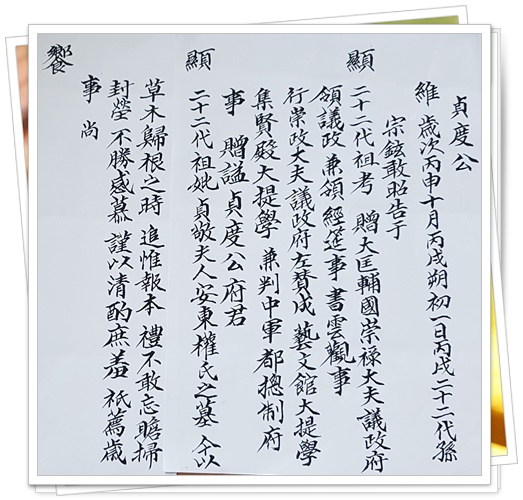 貞度公
維 歲次丙申十月丙戌朔初一日丙戌二十二代孫
宗鉉敢昭告于
顯
二十二代祖考 贈大匡輔國崇祿大夫議政府
領議政 兼領 經筵事 書雲觀事
行崇政大夫議政府左贊成 藝文館大提學
集賢殿大提學 兼判中軍 都摠制府
事 贈諡 貞度公府君
顯
二十二代祖妣 貞敬夫人安東權氏之墓 今以
草木歸根之時 追惟報本 禮不敢忘瞻掃
封塋 不勝感慕 謹以清酌庶羞 祇薦歲
事 尚
饗